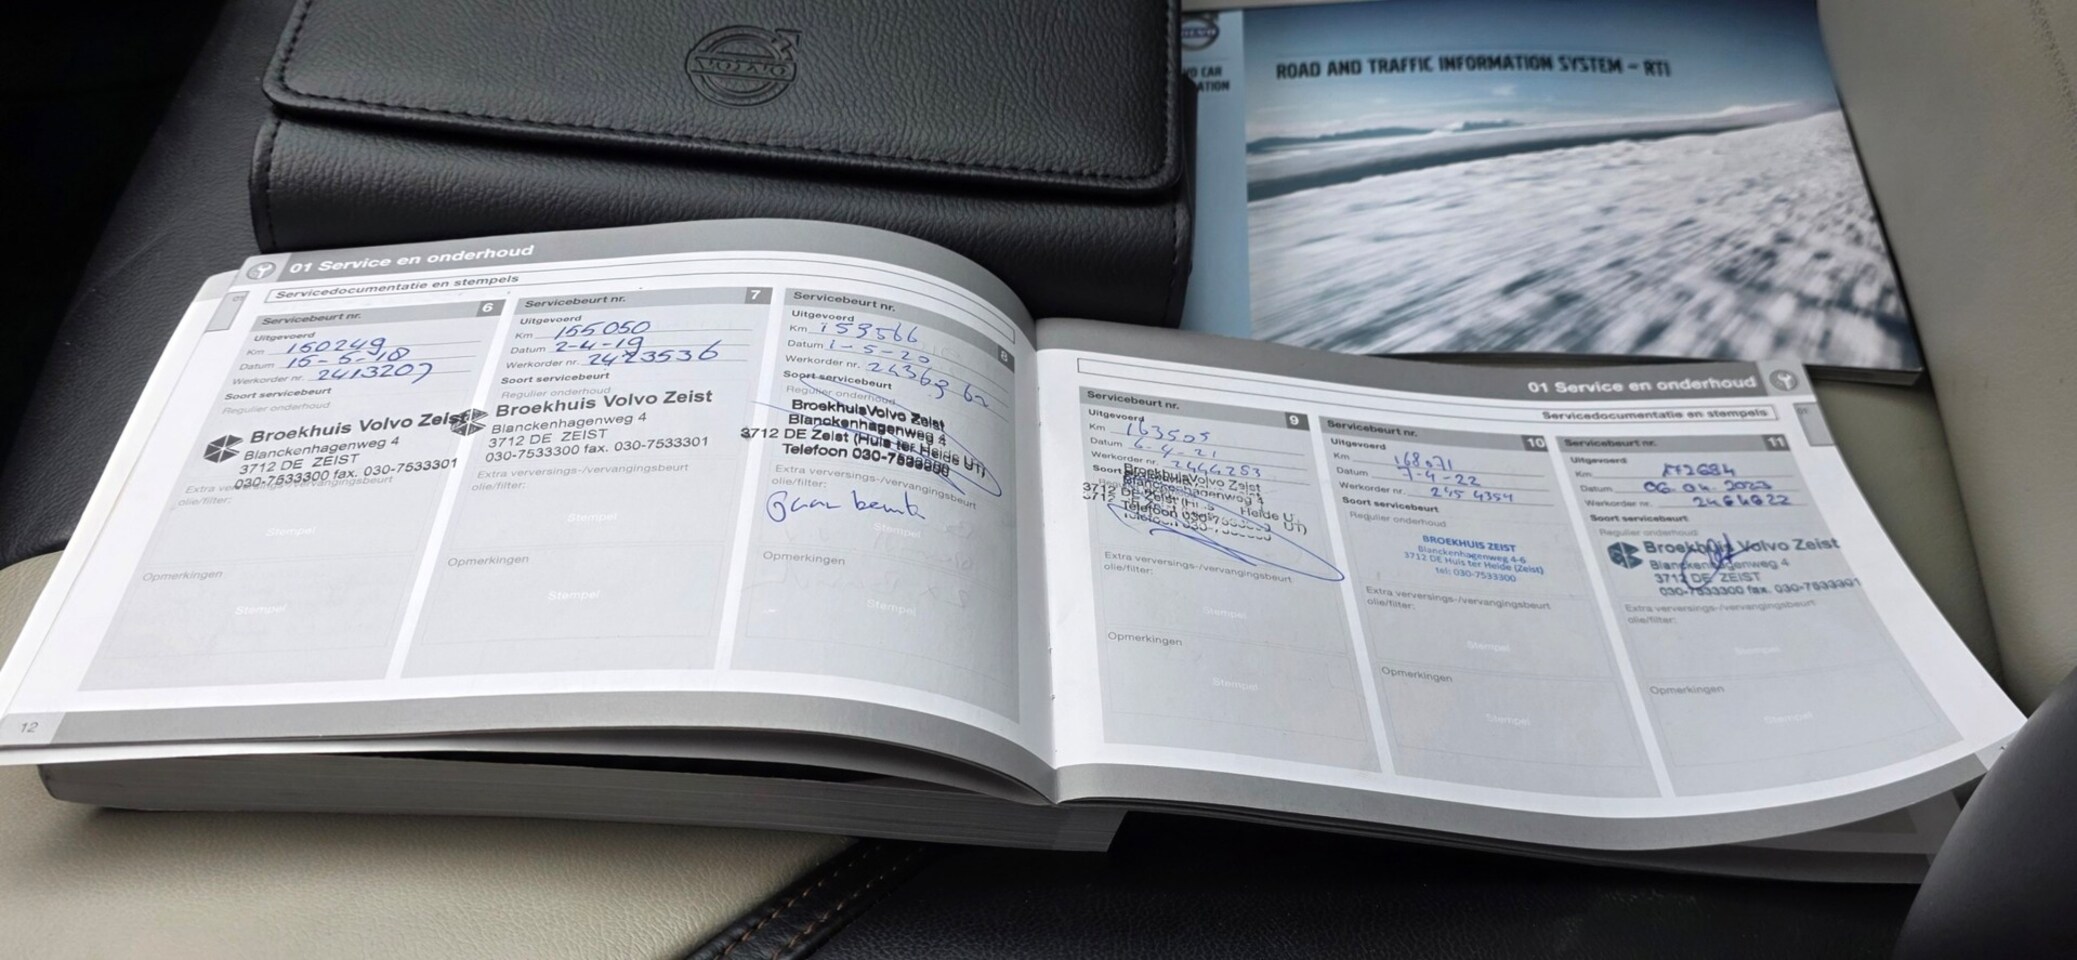 VOLVO
VOLVO
VO CAR
ATION
ROAD AND TRAFFIC INFORMATION SYSTEM - RTI
01 Service en onderhoud
Servicedocumentatie en stempels
01
Servicebeurt nr. 6
Uitgevoerd
Km 150249
Datum 16-5-18
Werkorder nr. 2413207
Soort servicebeurt
Regulier onderhoud
Broekhuis Volvo Zeist
Blanckenhagenweg 4
3712 DE ZEIST
030-7533300 fax. 030-7533301
Extra verversings-/vervangingsbeurt
olie/filter:
Stempel
Opmerkingen
Stempel
12
Servicebeurt nr. 7
Uitgevoerd
Km 155050
Datum 2-4-19
Werkorder nr. 2423536
Soort servicebeurt
Regulier onderhoud
Broekhuis Volvo Zeist
Blanckenhagenweg 4
3712 DE ZEIST
030-7533300 fax. 030-7533301
Extra verversings-/vervangingsbeurt
olie/filter:
Stempel
Opmerkingen
Stempel
Servicebeurt nr. 8
Uitgevoerd
Km 153566
Datum 1-5-20
Werkorder nr.
Soort servicebeurt
Regulier onderhoud
Broekhuis Volvo Zeist
Blanckenhagenweg 4
3712 DE Zeist (Huis ter Heide Ut)
Telefoon 030-7533300
Extra verversings-/vervangingsbeurt
olie/filter:
Stempel
Opmerkingen
Stempel
01 Service en onderhoud
Servicedocumentatie en stempels
01
Servicebeurt nr. 9
Uitgevoerd
Km 163505
Datum 6-4-21
Werkorder nr. 2444253
Soort
Broekhuis Volvo Zeist
Blanckenhagenweg 4
3712 DE Zeist Heide Ut)
Telefoon 030-7533300
Extra verversings-/vervangingsbeurt
olie/filter:
Stempel
Opmerkingen
Stempel
Servicebeurt nr. 10
Uitgevoerd
Km 168071
Datum 7-4-22
Werkorder nr. 245 4354
Soort servicebeurt
Regulier onderhoud
BROEKHUIS ZEIST
Blanckenhagenweg 4-6
3712 DE Huis ter Heide (Zeist)
tel: 030-7533300
Extra verversings-/vervangingsbeurt
olie/filter:
Stempel
Opmerkingen
Stempel
Servicebeurt nr. 11
Uitgevoerd
Km 172684
Datum 06.04.2023
Werkorder nr. 2464622
Soort servicebeurt
Regulier onderhoud
Broekhuis Volvo Zeist
Blanckenhagenweg 4
3712 DE ZEIST
030-7533300 fax. 030-7533301
Extra verversings-/vervangingsbeurt
olie/filter:
Stempel
Opmerkingen
Stempel